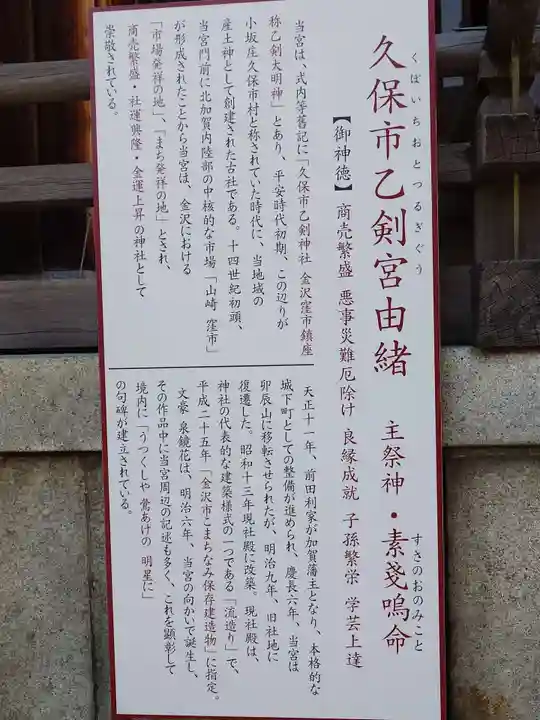 くぼいちおとつるぎぐう
久保市乙剣宮由緒 主祭神・素戔嗚命
すさのおのみこと
【御神徳】 商売繁盛 悪事災難厄除け 良縁成就 子孫繁栄 学芸上達
当宮は、式内等舊記に「久保市乙剣神社 金沢窪市鎮座
称乙剣大明神」とあり、平安時代初期、この辺りが
小坂庄久保市村と称されていた時代に、当地域の
産土神として創建された古社である。十四世紀初頭、
当宮門前に北加賀内陸部の中核的な市場「山崎 窪市」
が形成されたことから当宮は、金沢における
「市場発祥の地」、「まち発祥の地」とされ、
商売繁盛・社運興隆・金運上昇の神社として
崇敬されている。
天正十一年、前田利家が加賀藩主となり、本格的な
城下町としての整備が進められ、慶長六年、当宮は
卯辰山に移転させられたが、明治九年、旧社地に
復遷した。昭和十三年現社殿に改築。現社殿は、
神社の代表的な建築様式の一つである「流造り」で、
平成二十五年「金沢市こまちなみ保存建造物」に指定。
文豪 泉鏡花は、明治六年、当宮の向かいで誕生し、
その作品中に当宮周辺の記述も多く、これを顕彰して
境内に「うつくしや 鶯あけの 明星に」
の句碑が建立されている。